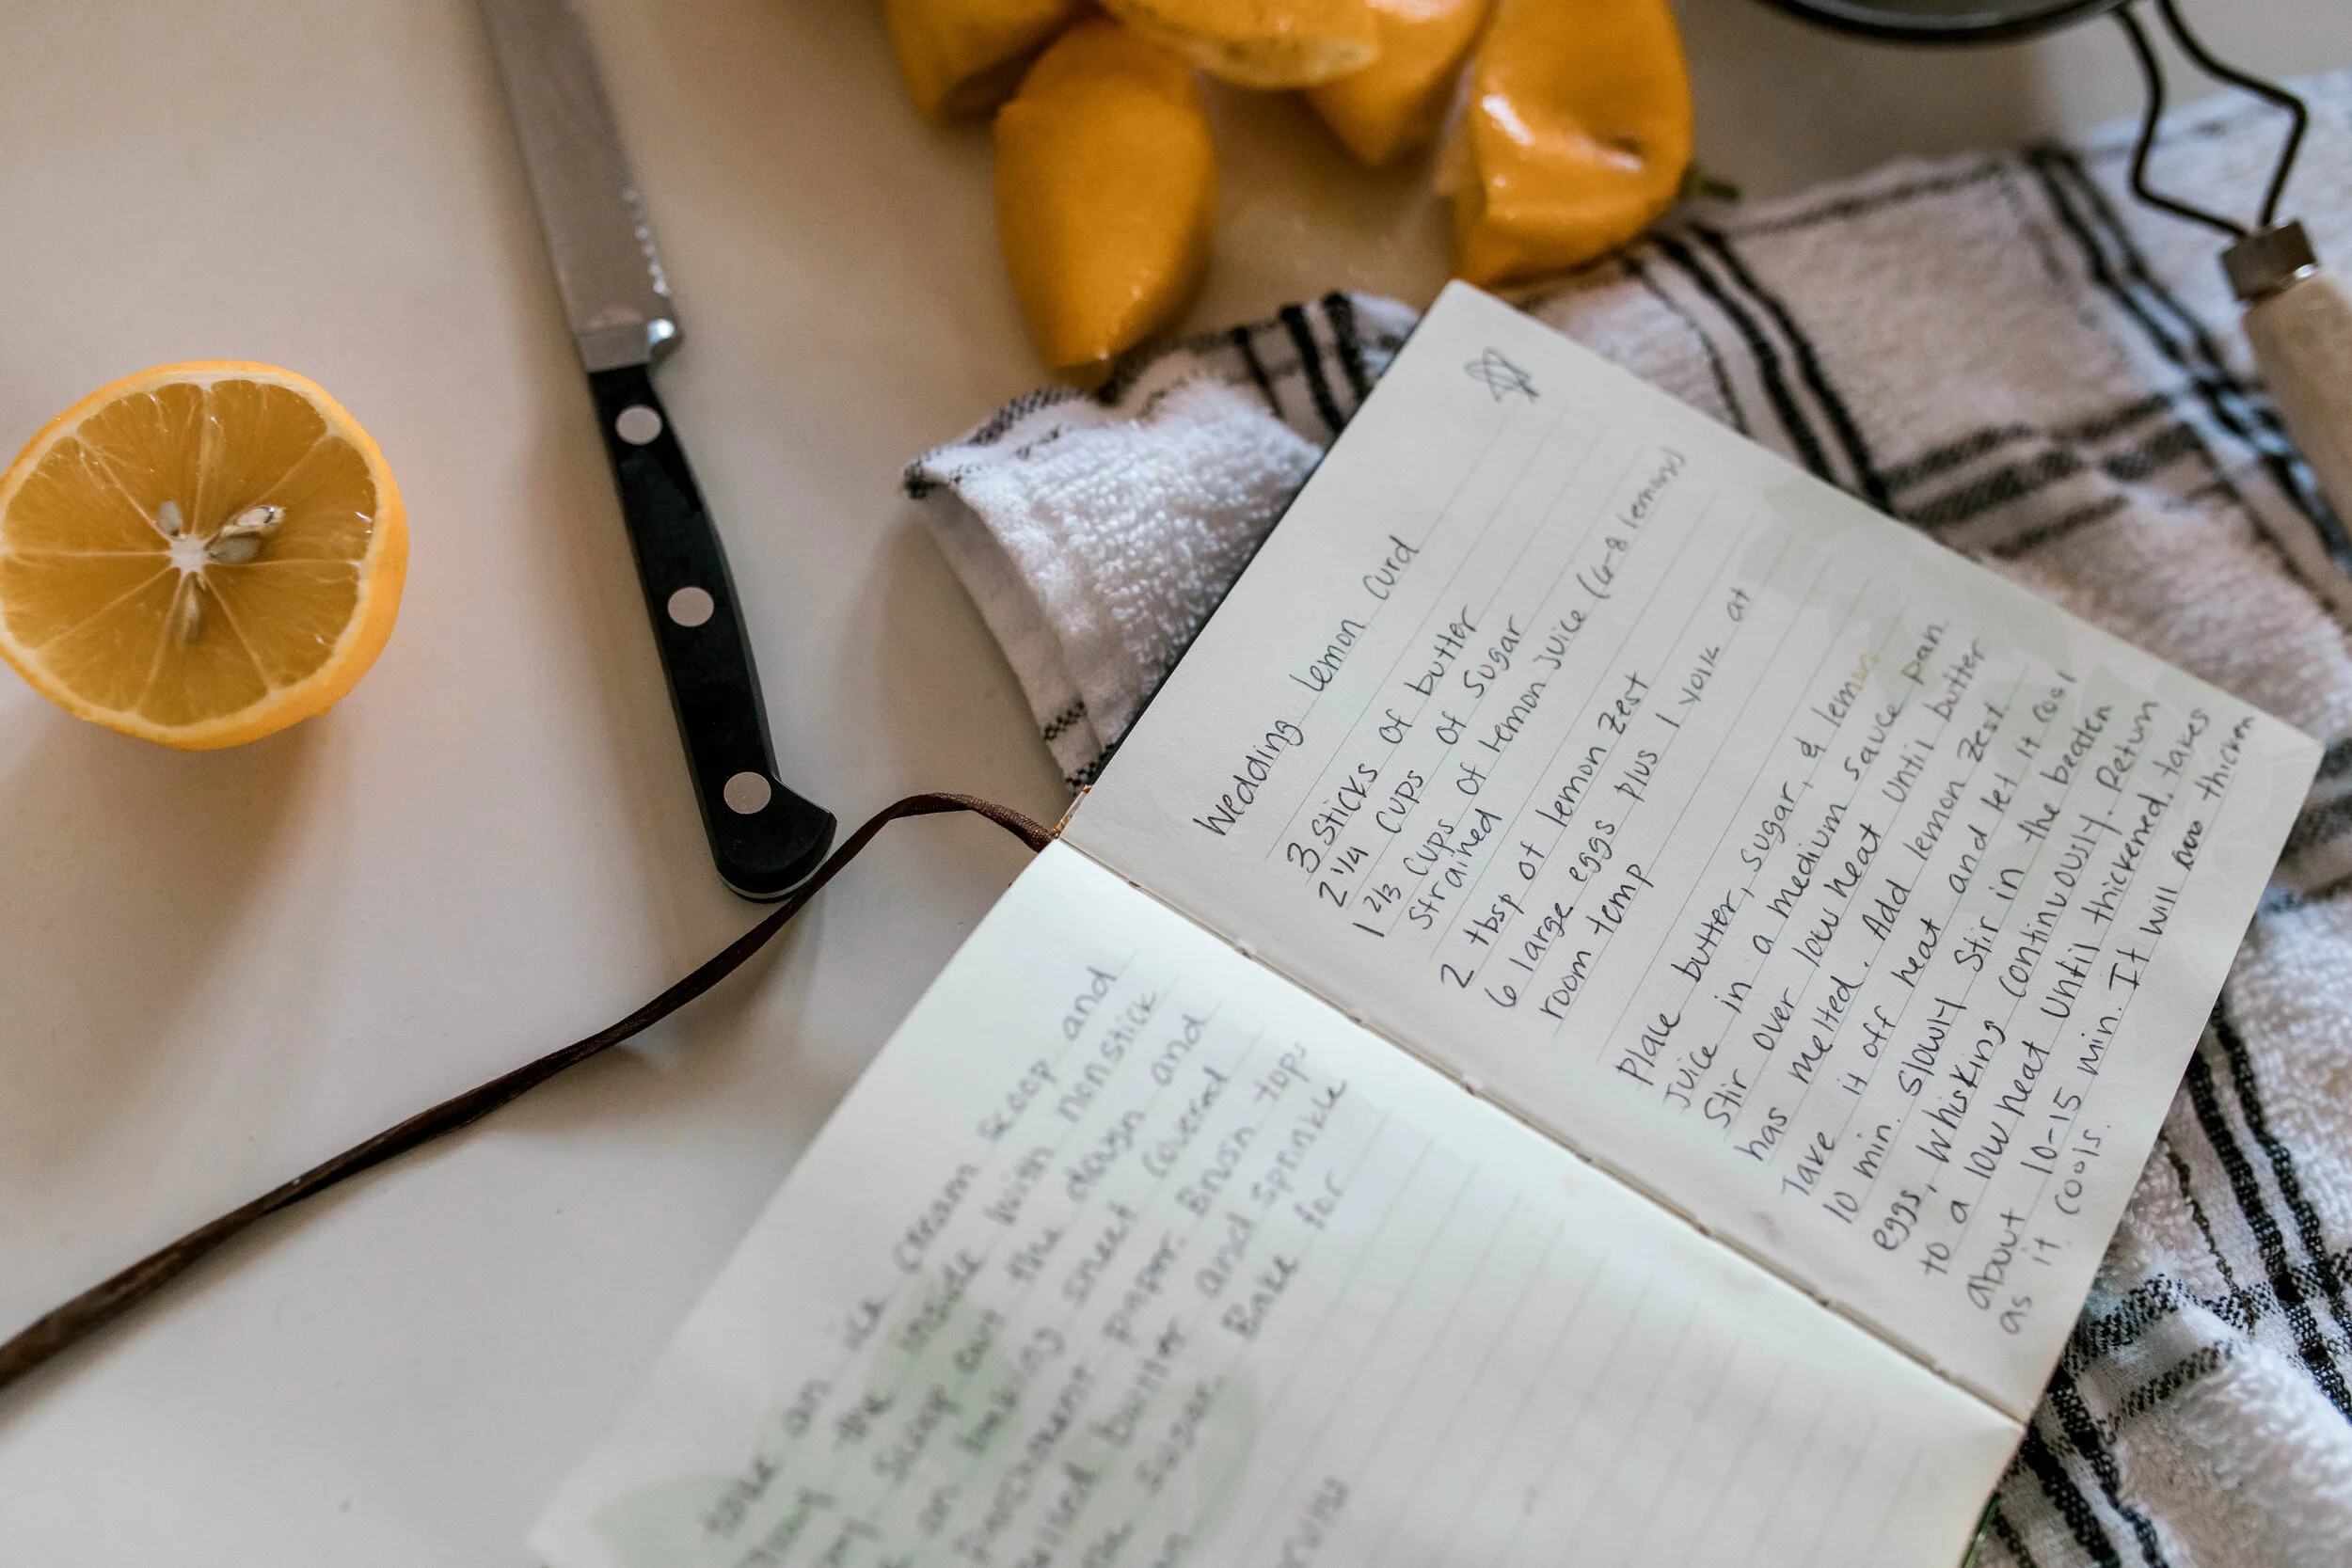 take an ice cream scoop and
the inside with nonstick
scoop out the dough and
on baking sheet covered
parchment paper. Brush tops
butter and sprinkle
sugar. Bake for
Wedding Lemon Curd
3 sticks of butter
2 1/4 cups of sugar
1 2/3 cups of lemon juice (6-8 lemons)
strained
2 tbsp of lemon zest
6 large eggs plus 1 yolk at
room temp
Place butter, sugar, & lemon
juice in a medium sauce pan.
Stir over low heat until butter
has melted. Add lemon zest.
Take it off heat and let it cool
10 min. Slowly stir in the beaten
eggs, whisking continuously. Return
to a low heat until thickened, takes
about 10-15 min. It will thicken
as it cools.